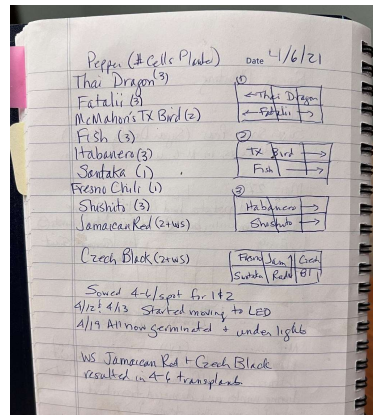 Pepper (# Cells Planted) Date 4/6/21
Thai Dragon (3)
Fatalii (3)
McMahon's TX Bird (2)
Fish (3)
Habanero (3)
Santaka (1)
Fresno Chili (1)
Shishito (3)
Jamaican Red (2+ws)
Czech Black (2+ws)
①
←Thai Dragon
←Fatalii
②
TX Bird →
Fish →
③
Habanero →
Shishito →
Fresno Jam Czech
Santaka Red Bl
Sowed 4-6/spot for 1&2
4/12 & 4/13 Started moving to LED
4/19 All now germinated + under lights
WS Jamaican Red + Czech Black
resulted in 4-6 transplants